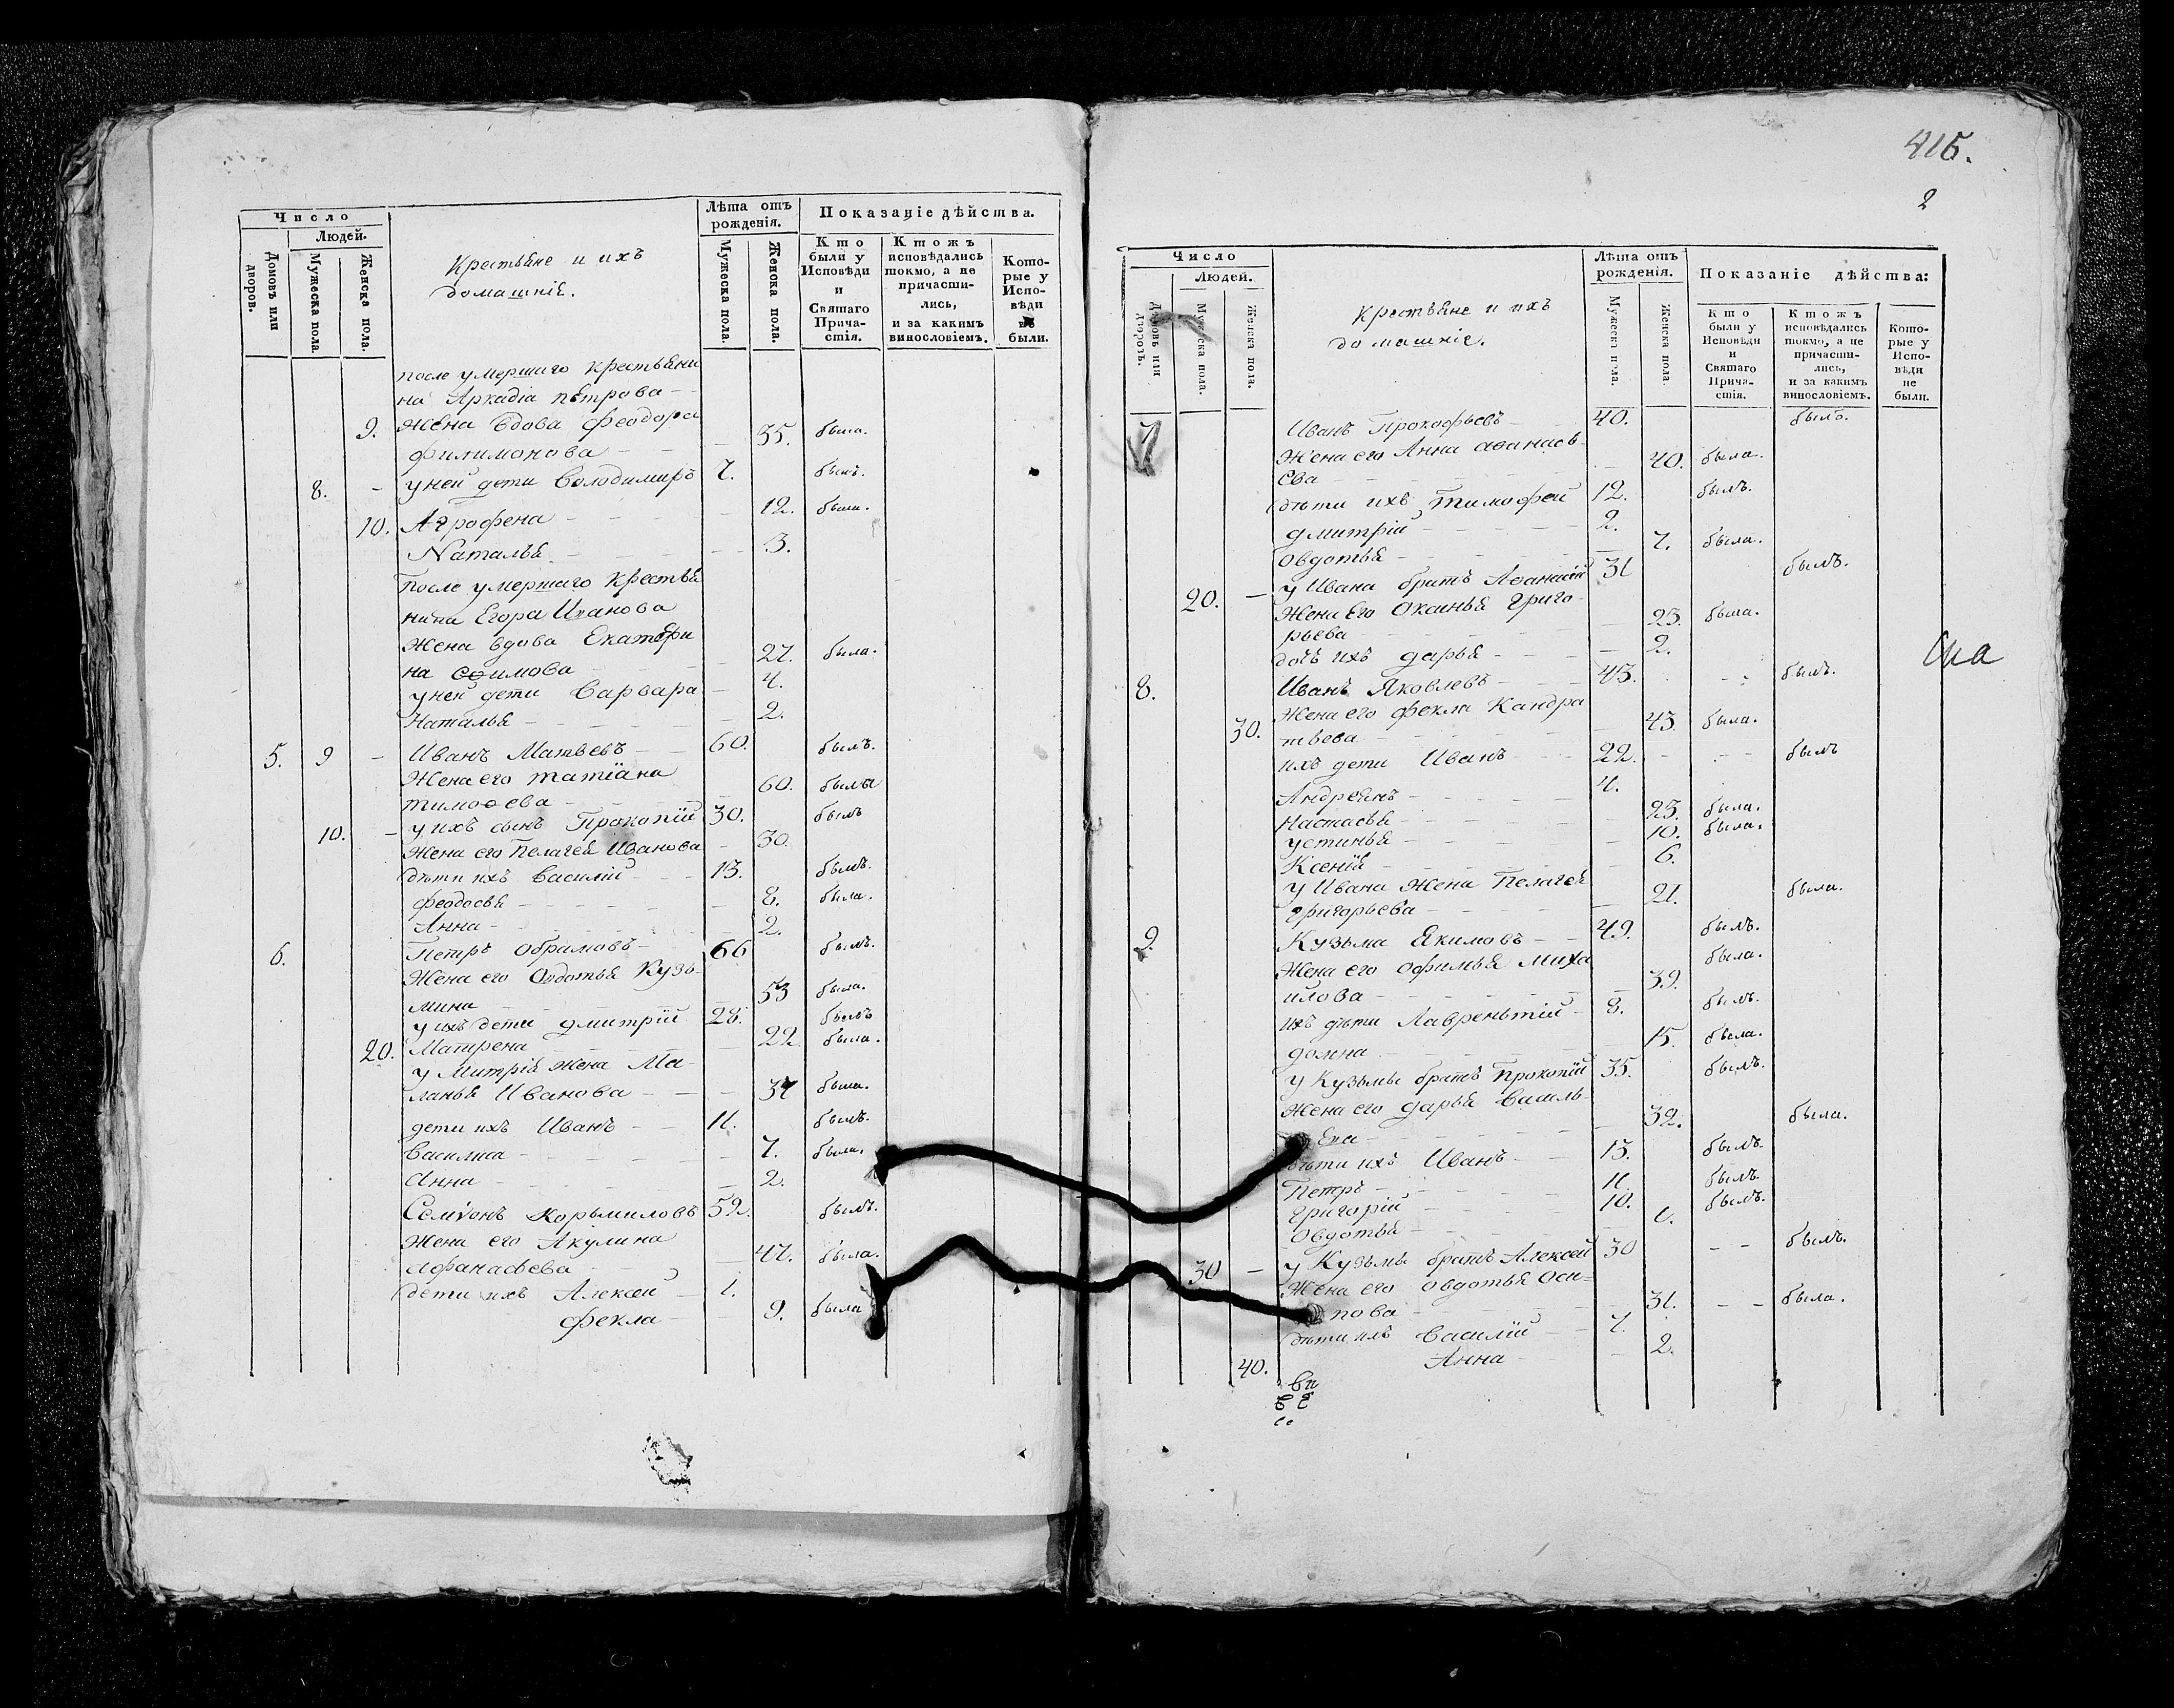 Число
Людей.
Домовъ или дворов.
Мужеска пола.
Женска пола.
Крестьяне и ихъ
домашнiе.
Лѣта отъ рожденія.
Мужеска пола.
Женска пола.
Показаніе дѣйства.
Кто были у Исповѣди и Святаго Прича-стія.
Ктожъ исповѣдались токмо, а не причасти-лись, и за какимъ винословіемъ.
Кото-рые у Испо-вѣди не были.
после умершаго крестьяни
на Аркадiа петрова
9. жена вдова Феодора
филимонова 35. была.
8. - у ней дети Володимиръ 7. былъ.
10. Агрофена 12. была.
Наталья 3.
После умершаго крестья
нина Егора Иванова
жена вдова Екатери
на 27. была.
у ней дети Варвара 4.
Наталья 2.
5. 9 - Иванъ Матвевъ 60. былъ.
Жена его татiана
тимоѳева 60. была
10. - у ихъ сынъ Прокопiй 30. былъ
Жена его Пелагея Иванова 30.
дѣти ихъ Василiй 13. былъ.
Феодосья 8. была.
Анна 2.
6. Петръ Обрамовъ 66 былъ.
Жена его Овдотья Кузь
мина 53 была.
у ихъ дети дмитрiй 28. былъ
20. Матрена 22 была.
у Митрiя жена Ма-
ланья Иванова 34 была.
дети ихъ Иванъ 11. былъ.
Василиса 7. была.
Анна 2.
Семiонъ Корьмиловъ 52. былъ.
Жена его Акулина
Афанасьева 47. была.
дети ихъ Алексеи 1.
фекла 9. была
415.
2
Число
Людей.
Домовъ или дворовъ.
Мужеска пола.
Женска пола.
Крестьяне и ихъ
домашнiе.
Лѣта отъ рожденія.
Мужеска пола.
Женска пола.
Показаніе дѣйства:
Кто были у Исповѣди и Святаго Прича-стія.
Ктожъ исповѣдались токмо, а не причасти-лись, и за какимъ винословіемъ.
Кото-рые у Испо-вѣди не были.
7 Иванъ Прокофьевъ 40. былъ.
Жена его Анна аѳанась-
ева 40. была.
дѣти ихъ Тимофей 12. былъ.
дмитрiй 2.
Овдотья 7. была.
20. - у Ивана братъ Аѳанасiй 31 былъ.
Жена его Оксинья Григо
рьева 23. была.
дочь ихъ дарья 2.
8. Иванъ Яковлевъ 43. былъ.
30. Жена его фекла Кандра
тьева 43. была.
ихъ дети Иванъ 22. былъ
Андреянъ 4.
Настасья 23. была.
устинья 10. была.
Ксенiя 6.
у Ивана Жена Пелагея
григорьева 21. была.
9. Кузьма Екимовъ 49. былъ.
Жена его Офимья Миха
илова 39. была.
ихъ дѣти Лаврентiй 8. былъ.
домна 15. была.
у Кузьмы братъ Прокопiй 35. былъ.
Жена его дарья Василь-
ева 32. была.
дѣти ихъ Иванъ 13. былъ
Петръ 11. былъ.
Григорiй 10. былъ.
Овдотья
30 - у Кузьмы братъ Алексей 30 былъ.
Жена его овдотья Оси=
пова 31. была.
дѣти ихъ Василiй 7.
40. Анна 2.